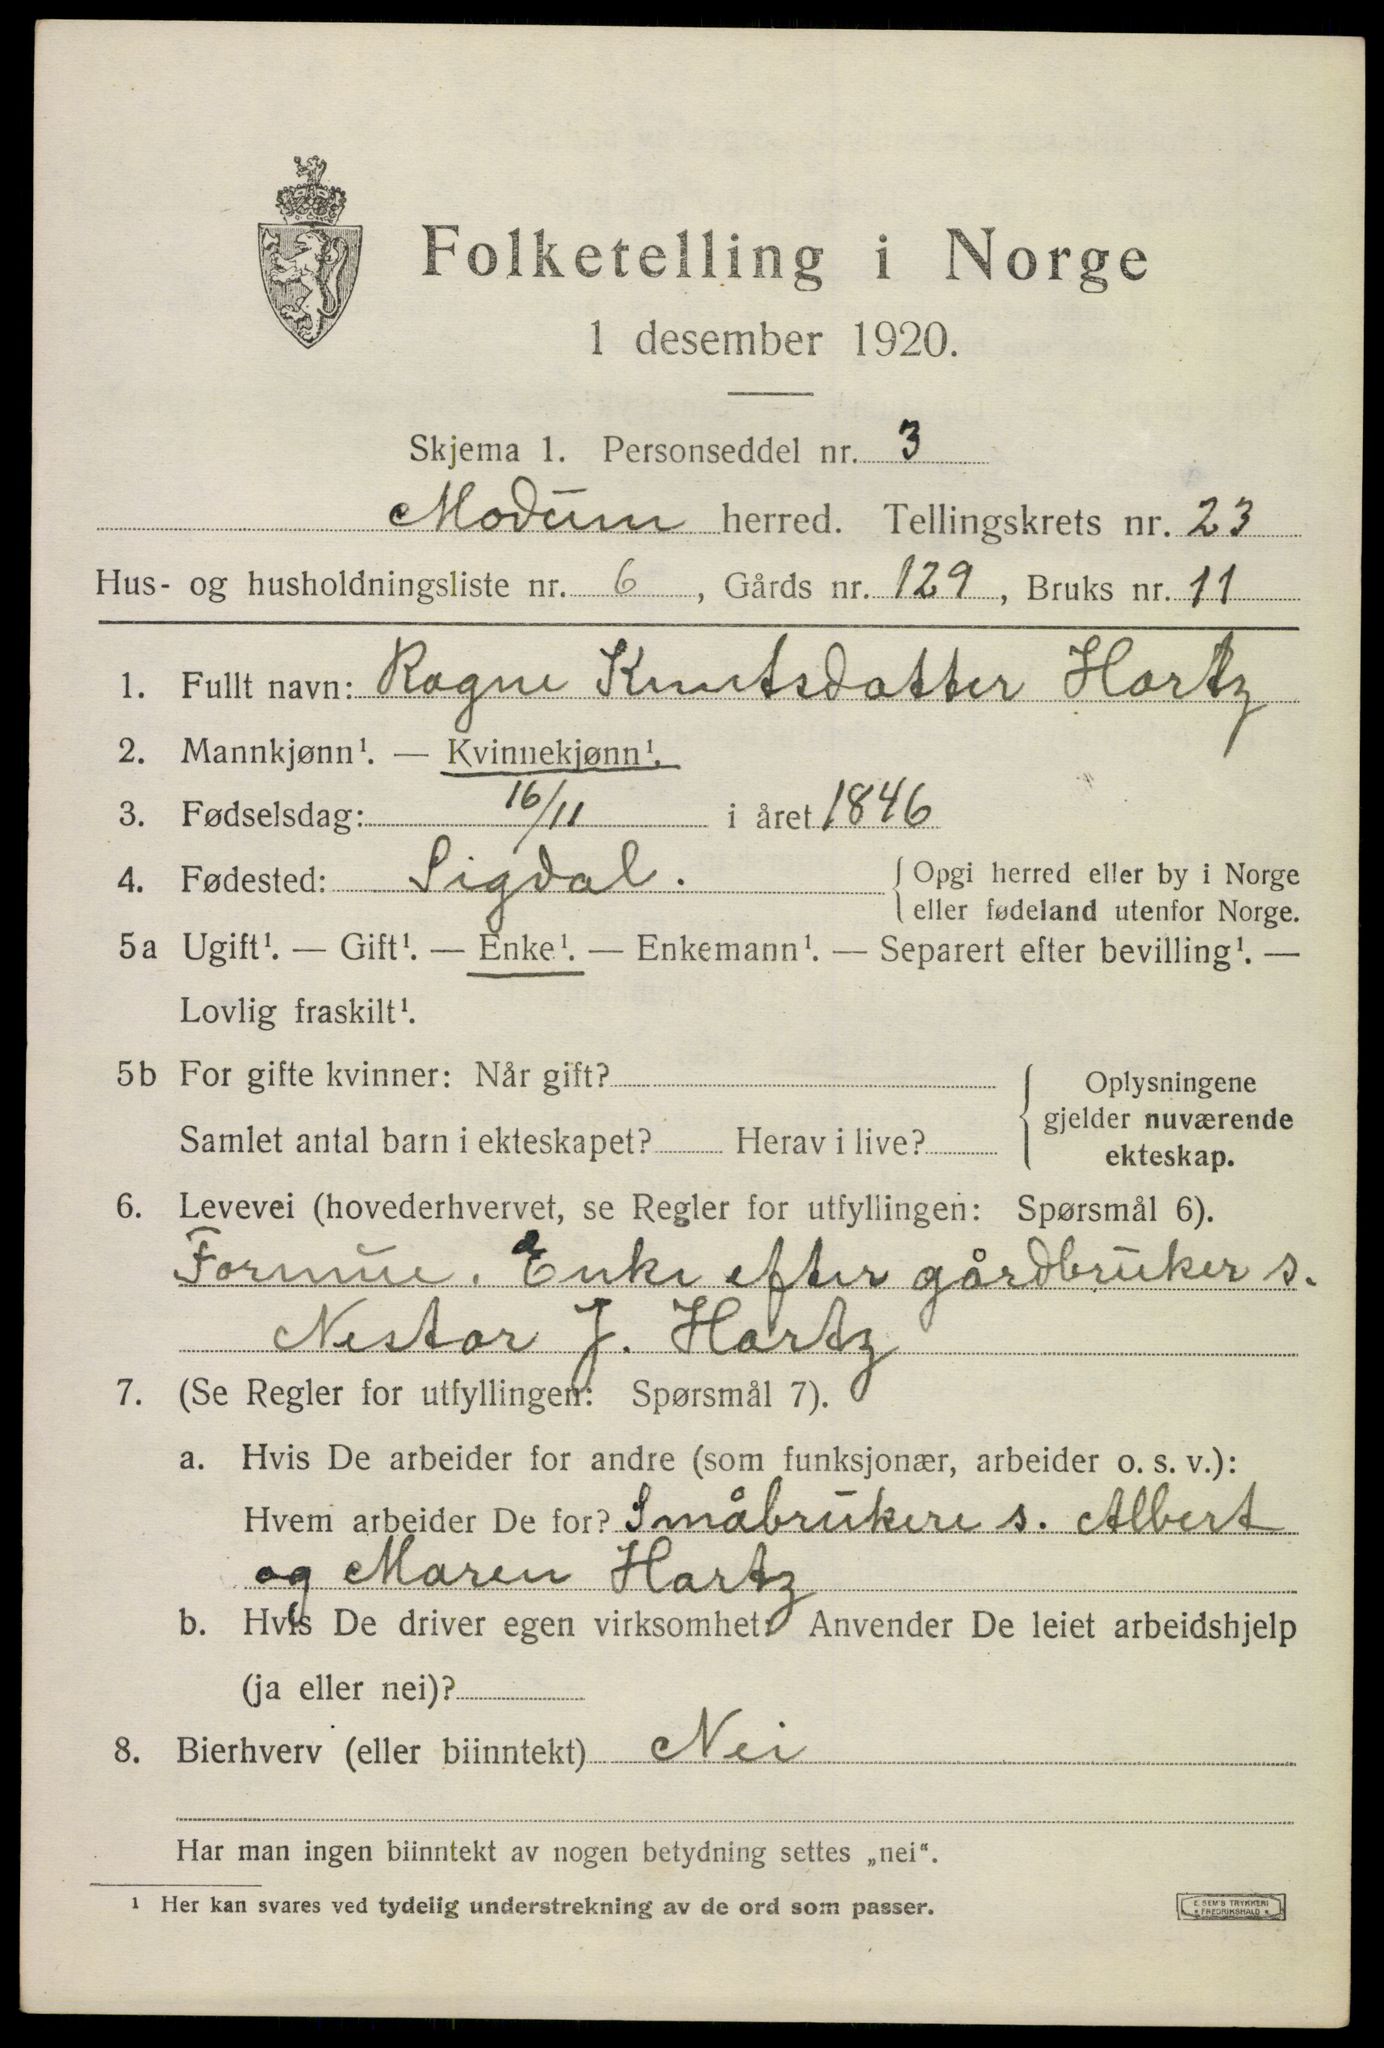 Folketelling i Norge
1 desember 1920.
Skjema 1. Personseddel nr. 3
Modum herred. Tellingskrets nr. 23
Hus- og husholdningsliste nr. 6, Gårds nr. 129, Bruks nr. 11
1. Fullt navn: Ragne Knutsdatter Hartz
2. Mannkjønn¹. — Kvinnekjønn¹.
3. Fødselsdag: 16/11 i året 1846
4. Fødested: Sigdal. Opgi herred eller by i Norge
eller fødeland utenfor Norge.
5a Ugift¹. — Gift¹. — Enke¹. — Enkemann¹. — Separert efter bevilling¹. —
Lovlig fraskilt¹.
5b For gifte kvinner: Når gift? Oplysningene
gjelder nuværende
Samlet antal barn i ekteskapet? Herav i live?
ekteskap.
6. Levevei (hovederhvervet, se Regler for utfyllingen: Spørsmål 6).
Formue. Enke efter gårdbruker s.
Nestor J. Hartz
7. (Se Regler for utfyllingen: Spørsmål 7).
a. Hvis De arbeider for andre (som funksjonær, arbeider o. s. v.):
Hvem arbeider De for? Småbrukere s. Albert
og Maren Hartz
b. Hvis De driver egen virksomhet: Anvender De leiet arbeidshjelp
(ja eller nei)?
8. Bierhverv (eller biinntekt) Nei
Har man ingen biinntekt av nogen betydning settes „nei“.
¹ Her kan svares ved tydelig understrekning av de ord som passer.
E. SEM'S TRYKKERI
* FREDRIKSHALD *